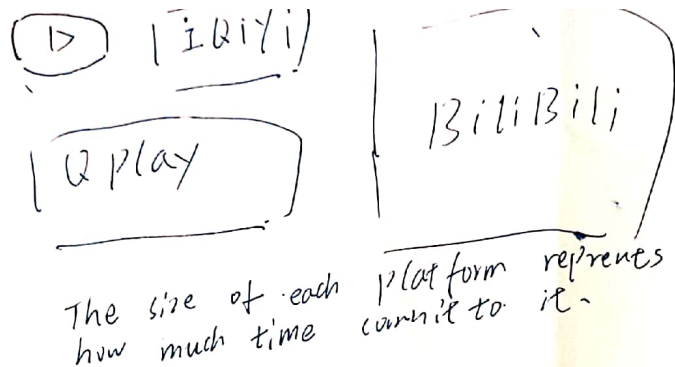 iQiYi
BiliBili
Q play
The size of each platform reprents
how much time commit to it.